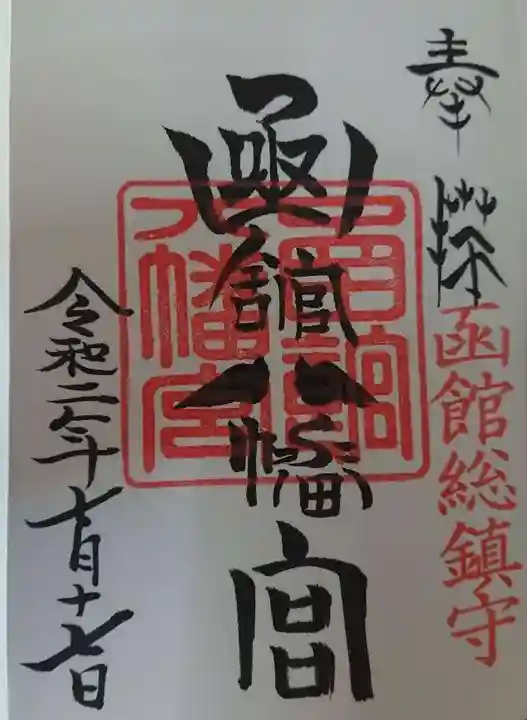 奉拝
函館総鎮守
凾舘八幡宮
八幡宮
令和二年十月十七日